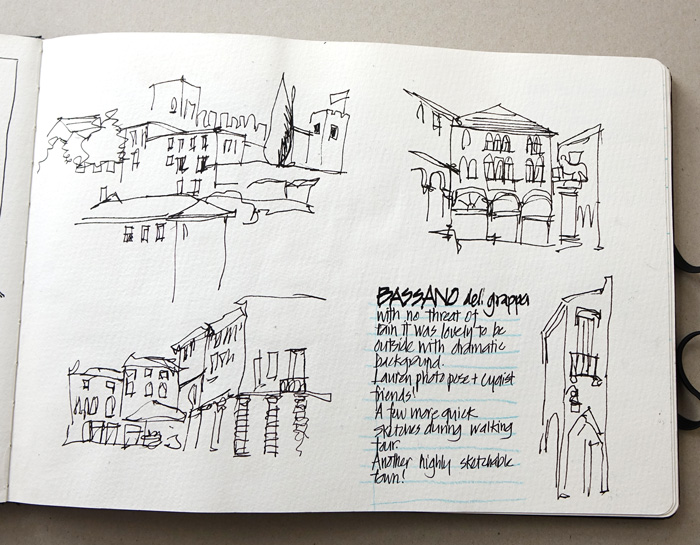 BASSANO deli grappa
with no threat of
rain it was lovely to be
outside with dramatic
background.
Lauren photo pose + cyclist
friends!
A few more quick
sketches during walking
tour.
Another highly sketchable
town!